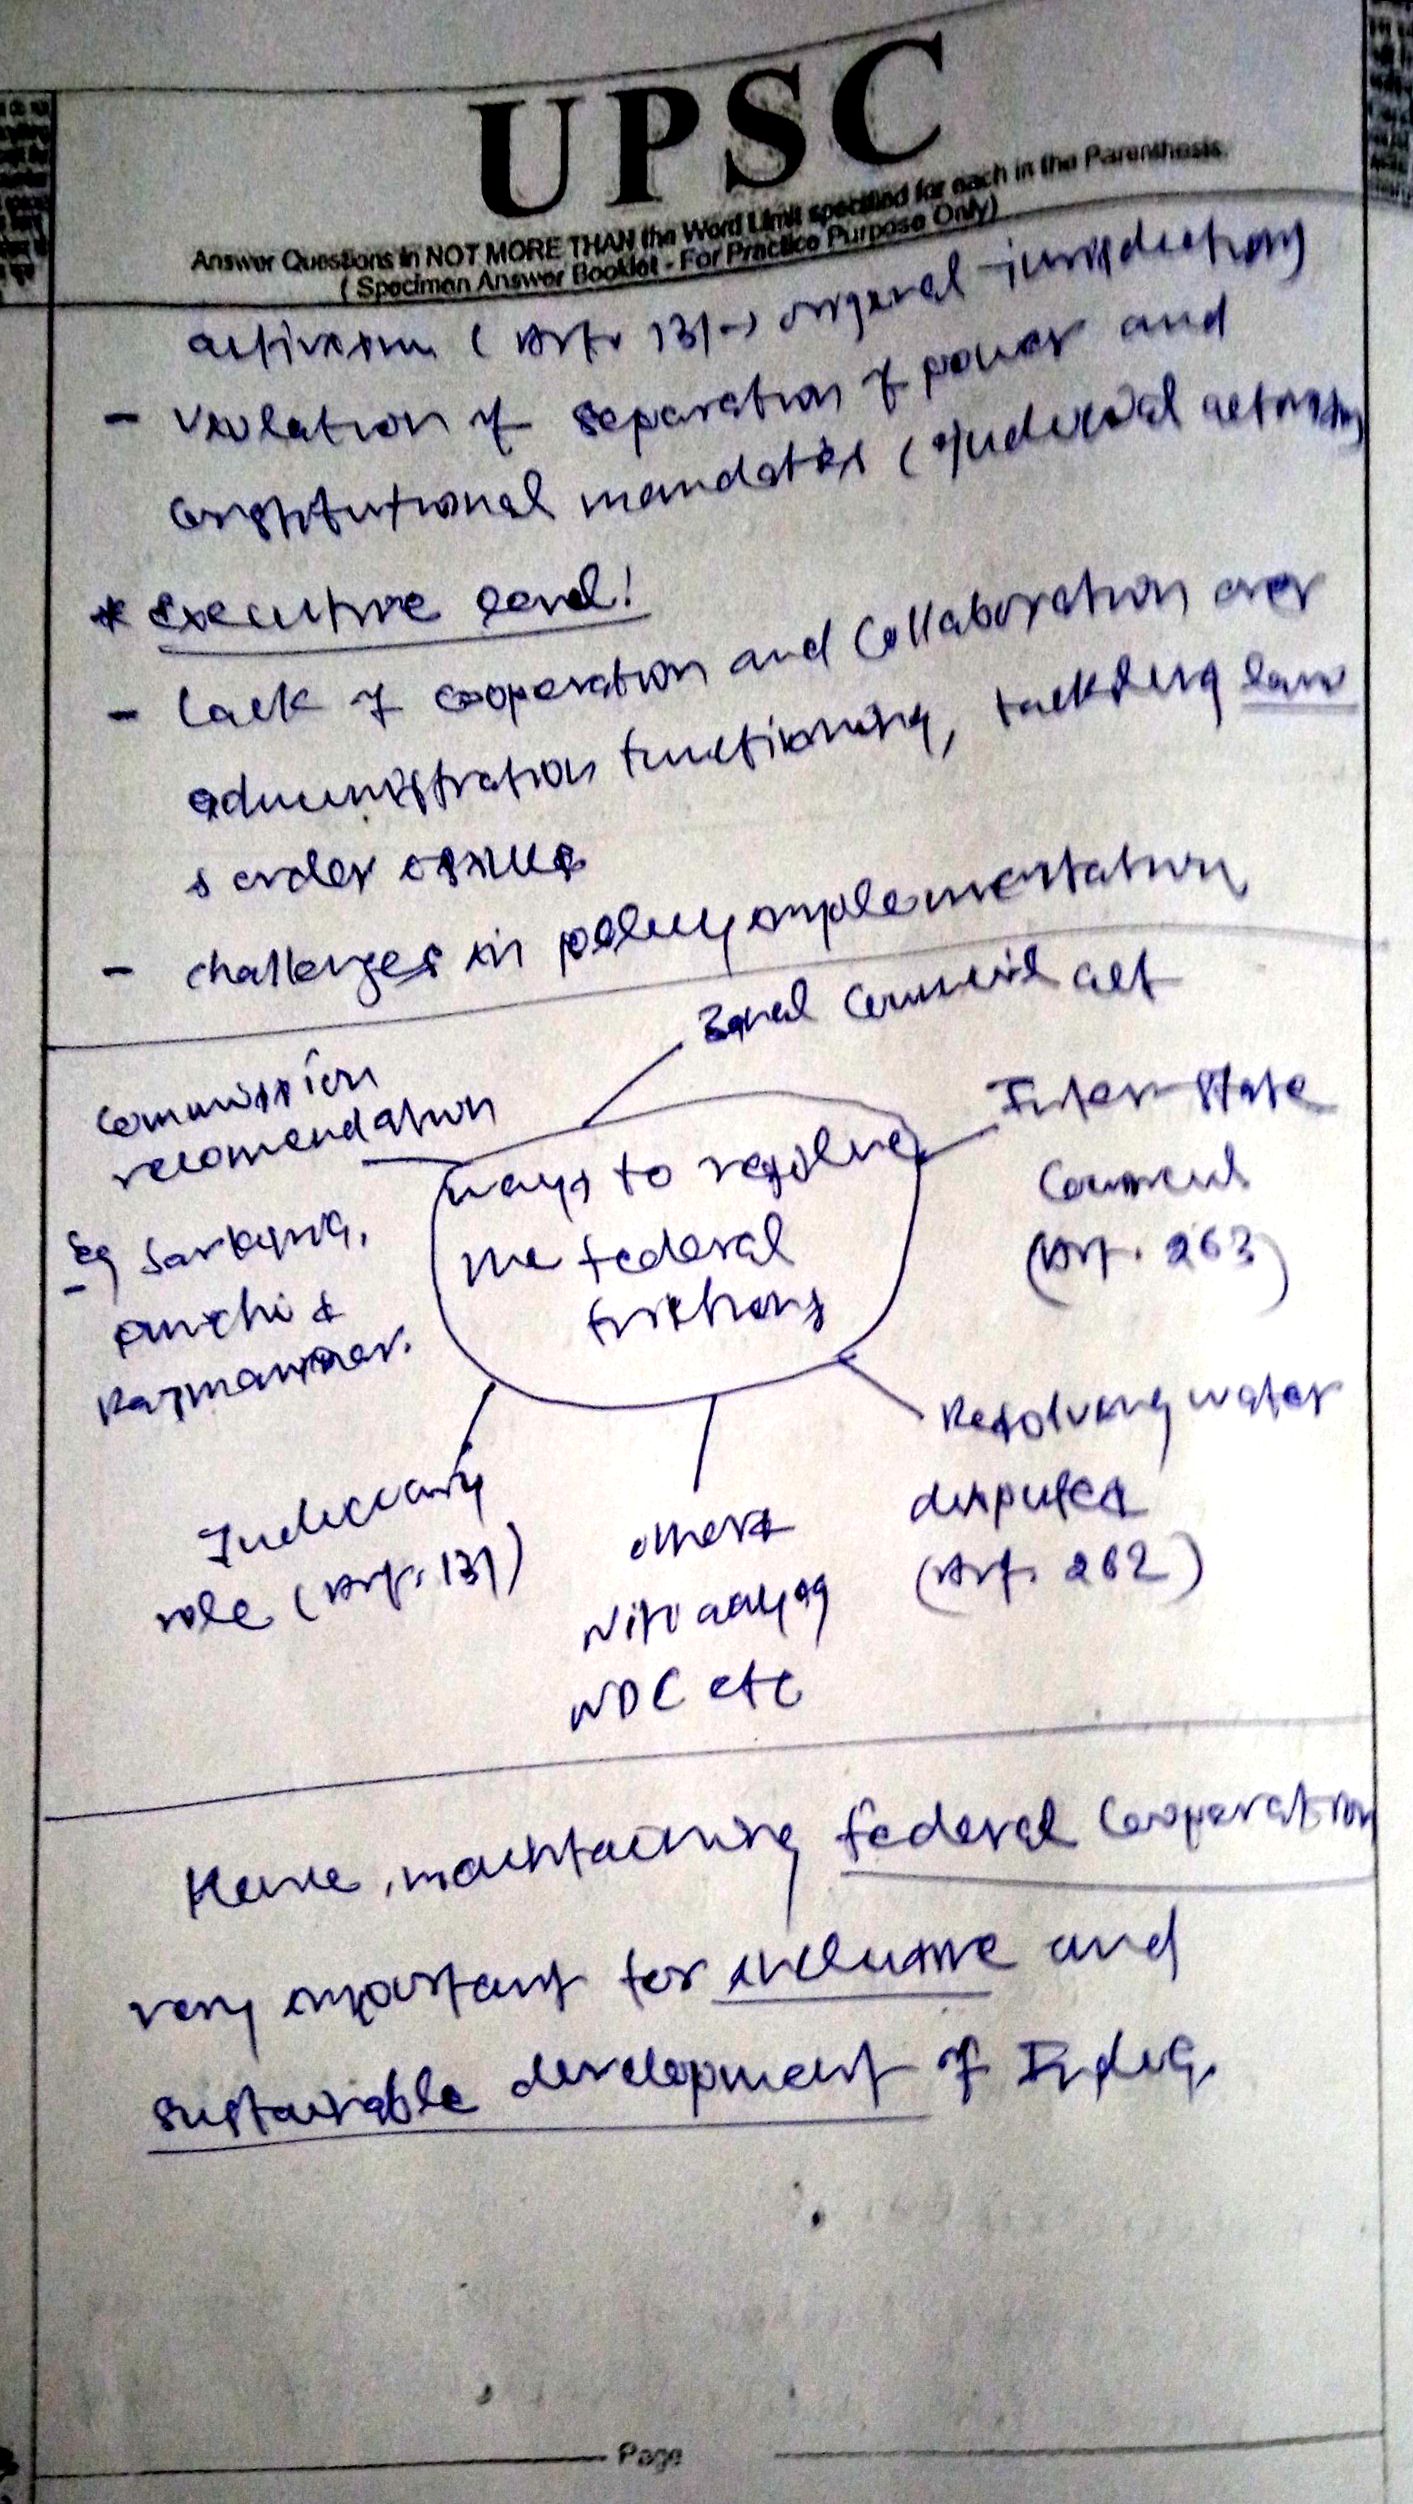 UPSC
Answer Questions in NOT MORE THAN the Word Limit specified for each in the Parenthesis.
( Specimen Answer Booklet - For Practice Purpose Only)
activism (Art. 131 → original jurisdiction)
- violation of separation of power and
constitutional mandates (judicial activism)
* Executive level:
- lack of cooperation and collaboration over
administration functioning, tackling law
& order issues
- challenges in policy implementation
Zonal Council act
Commission
recomendation
Eg Sarkaria,
Punchi &
Rajmannar.
ways to resolve
the federal
frictions
Inter-State
Council
(Art. 263)
Resolving water
disputes
(Art. 262)
Judiciary
role (Art. 131)
others
Niti aayog
NDC etc
Hence, maintaining federal cooperation
very important for inclusive and
sustainable development of India.
Page